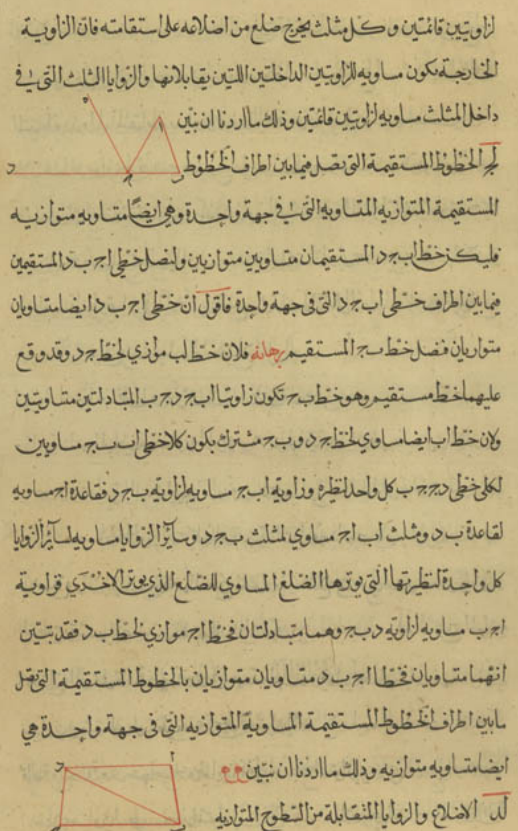 لزاويتين قائمتين وكل مثلث يخرج ضلع من اضلاعه على استقامته فان الزاوية
الخارجة تكون مساويه للزاويتين الداخلتين اللتين يقابلانها والزوايا الثلث التى فى
داخل المثلث مساويه لزاويتين قائمتين وذلك ما اردنا ان نبين
لج الخطوط المستقيمة التى تصل فيما بين اطراف الخطوط
المستقيمة المتوازيه المتساويه التى فى جهة واحدة وهى ايضا متساويه متوازيه
فليكن خط اب جد المستقيمان متساويين متوازيين ولنصل خطى اج ب د المستقيمين
فيما بين اطراف خطى اب جد التى فى جهة واحدة فاقول ان خطى اج ب د ايضا متساويان
متوازيان فنصل خط بج المستقيم برهانه فلان خط اب موازي لخط جد وقد وقع
عليهما خط مستقيم وهو خط بج تكون زاويتا ابج دجب المتبادلتين متساويتين
ولان خط اب ايضا مساوي لخط جد و بج مشترك يكون كلا خطى اب بج مساويين
لكلى خطى دج جب كل واحد لنظيره وزاوية ابج مساويه لزاويه بجد فقاعدة اج مساويه
لقاعدة ب د ومثلث اب اج مساوي لمثلث بجد وسائر الزوايا مساويه لسائر الزوايا
كل واحدة لنظيرتها التى يوترها الضلع المساوي للضلع الذي يوتر الاخرى فزاوية
اجب مساويه لزاويه دبج وهما متبادلتان فخط اج موازي لخط ب د فقد تبين
انهما متساويان فخطا اج ب د متساويان متوازيان بالخطوط المستقيمة التى تصل
مابين اطراف الخطوط المستقيمة المساوية المتوازيه التى فى جهة واحدة هي
ايضا متساويه متوازيه وذلك ما اردنا ان نبين
لد الاضلاع والزوايا المتقابلة من السطوح المتوازيه